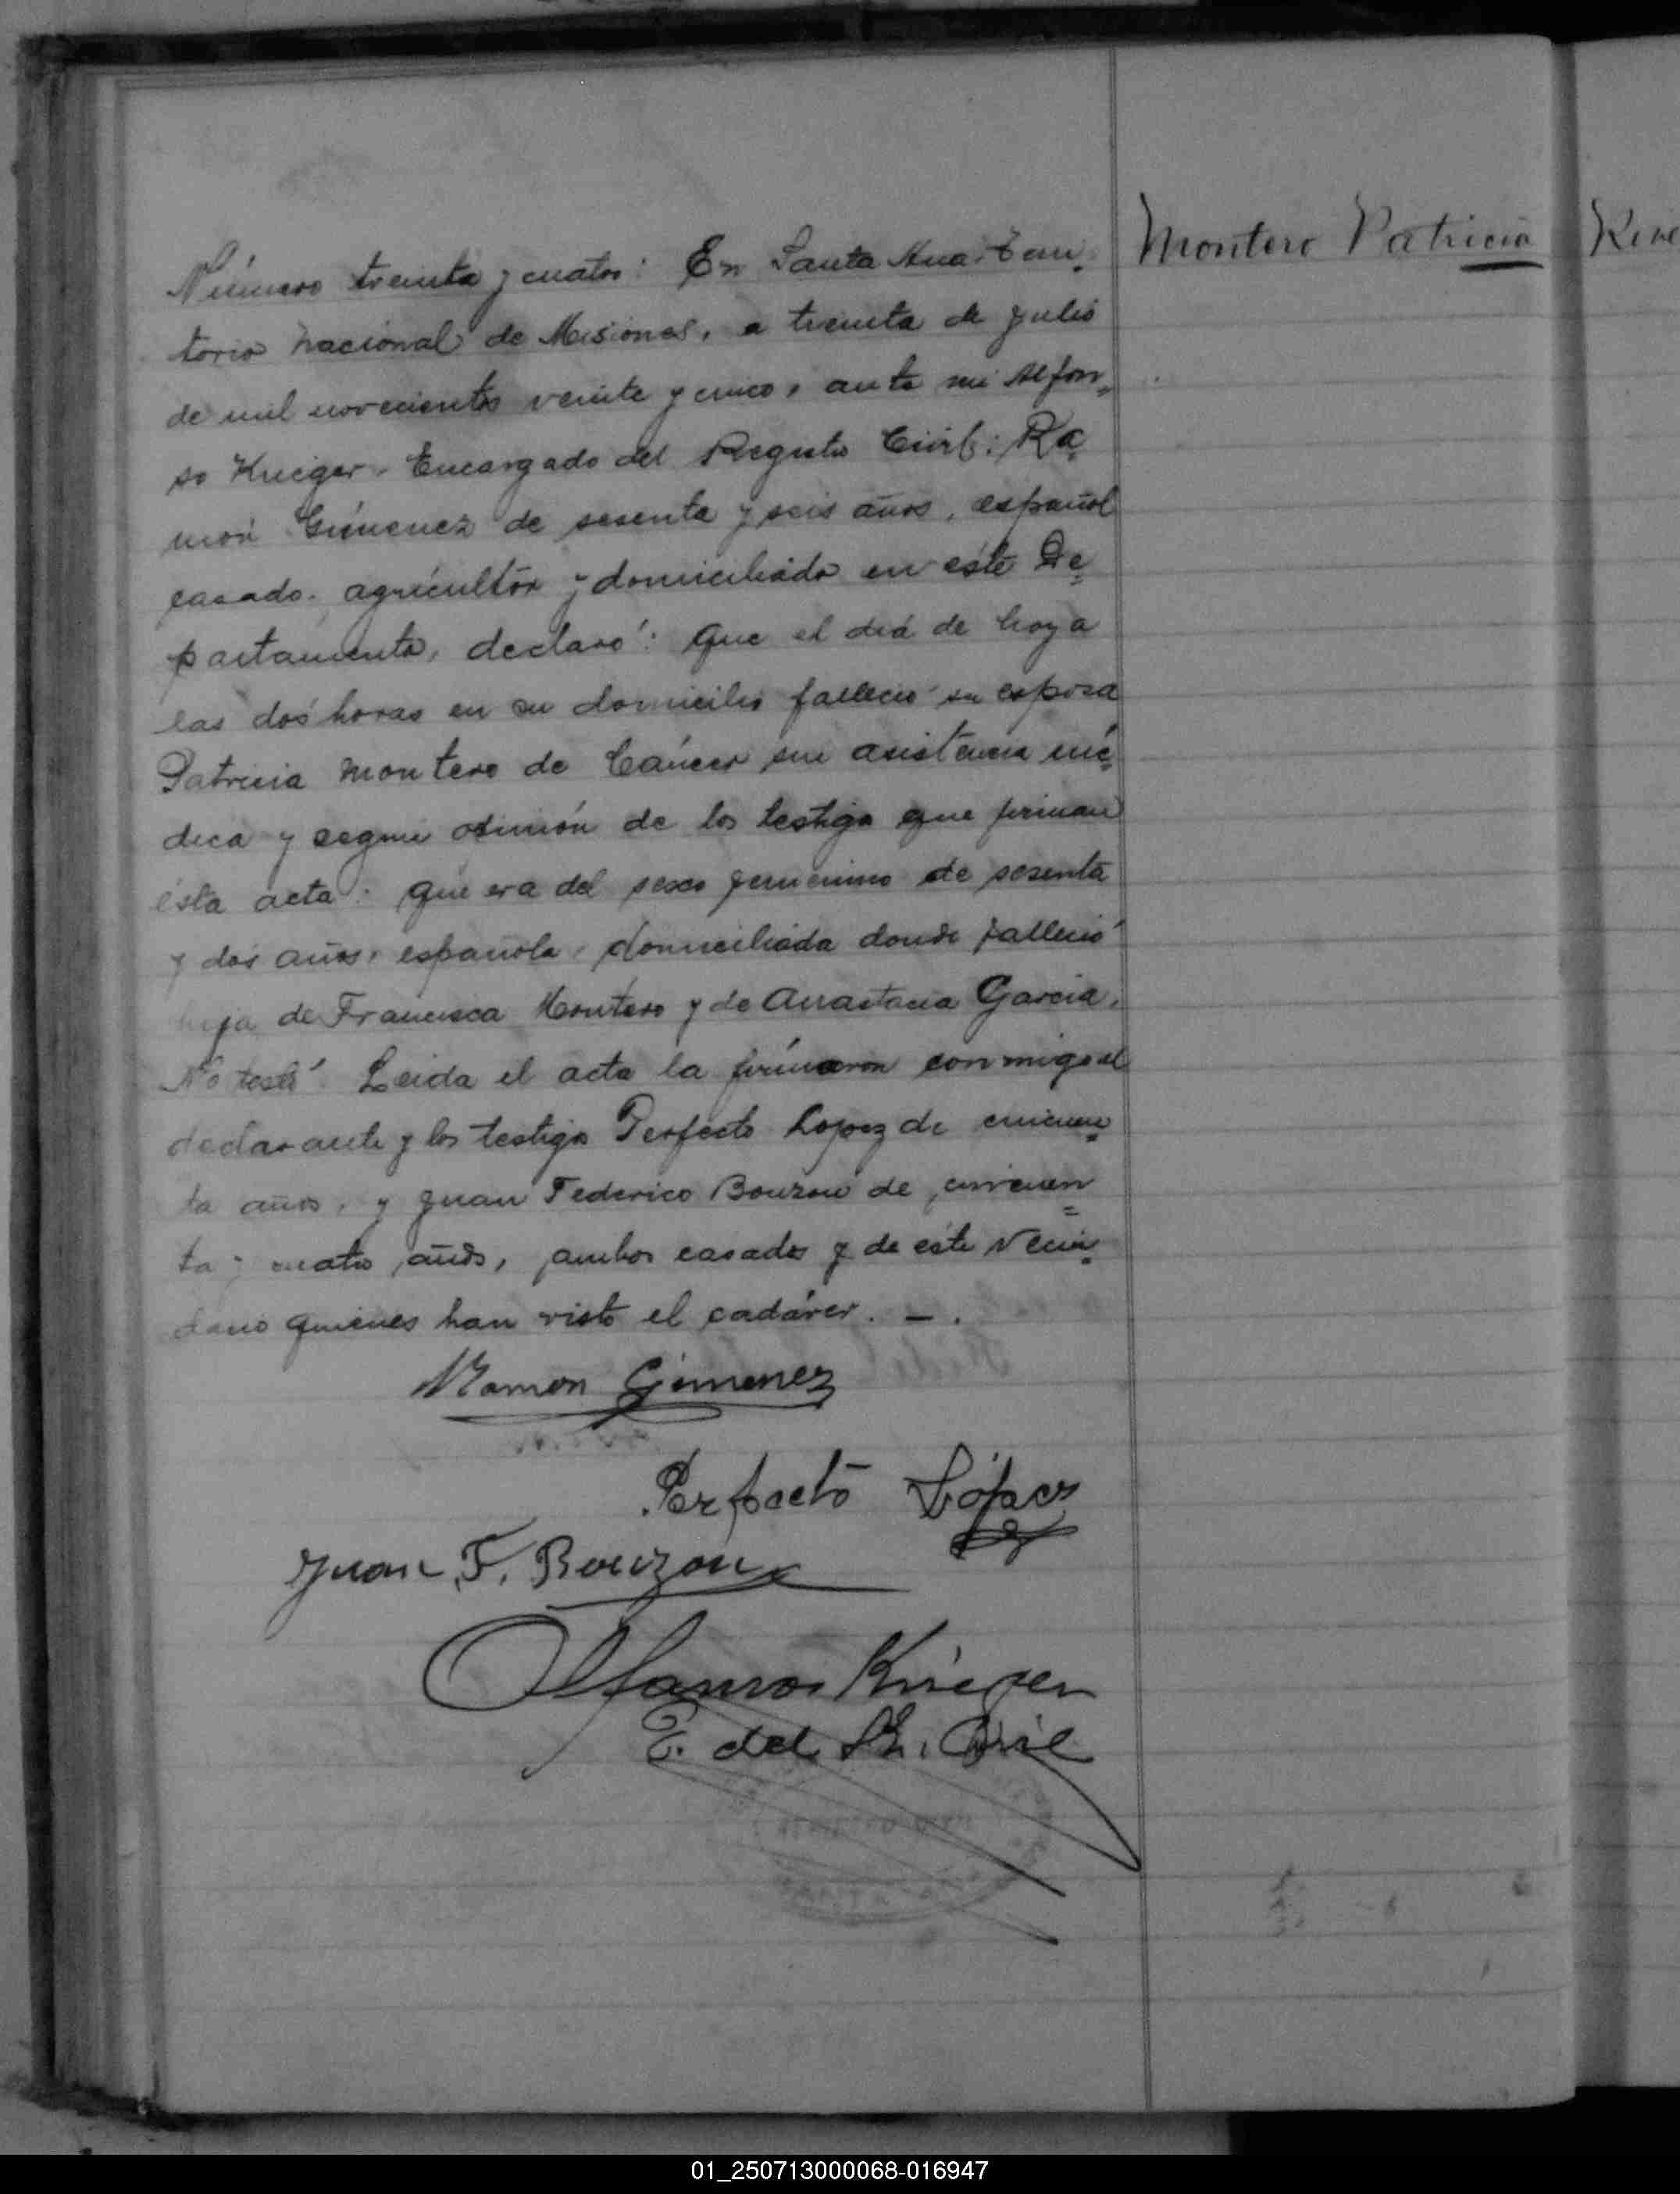 Montero Patricia
Número treinta y cuatro: En Santa Ana Terri-
torio Nacional de Misiones, a treinta de Julio
de mil novecientos veinte y cinco, ante mi Alfon-
so Krieger. Encargado del Registro Civil: Ra-
món Gimenez de sesenta y seis años, español
casado. agricultor y domiciliado en este De-
partamento, declaró: Que el día de hoy a
las dos horas en su domicilio falleció su esposa
Patricia Montero de Cáncer sin asistencia mé-
dica y segun opinión de los testigos que firman
ésta acta: que era del sexo femenino de sesenta
y dos años, española, domiciliada donde falleció
hija de Francisca Montero y de Anastacia Garcia.
No testó. Leida el acta la firmaron conmigo el
declarante y los testigos Perfecto Lopez de cincuen-
ta años, y Juan Federico Bouzon de cincuen=
ta y cuatro años, ambos casados y de este vecin-
dario quienes han visto el cadáver. — .
Ramon Gimenez
Perfecto López
Juan F. Bouzon
Alfonso Krieger
E. del R. Civil
01_250713000068-016947